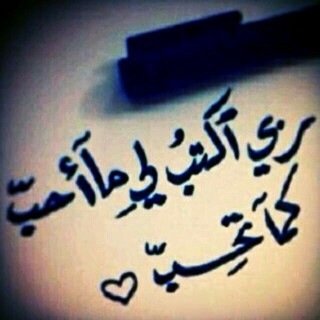 ربي آكتبُ لي مآ أحبّ
كمآ تحِبّ ♡